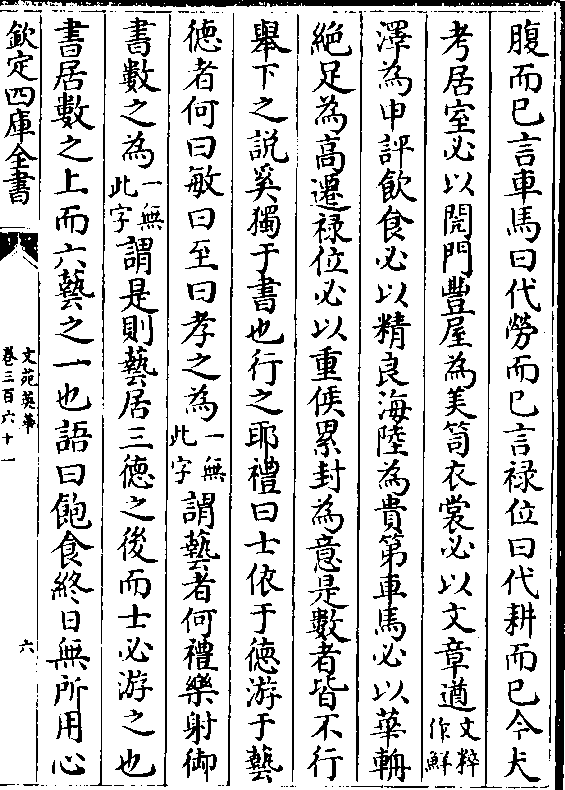 腹而已言車馬曰代勞而已言禄位曰代耕而已今夫
考居室必以閎門豐屋為美笥衣裳必以文章遒文粹作鮮
澤為申評飲食必以精良海陸為貴第車馬必以華輈
絶足為高遷禄位必以重候累封為意是數者皆不行
舉下之説奚獨于書也行之耶禮曰士依于德游于藝
德者何曰敏曰至曰孝之為一無此字謂藝者何禮樂射御
書數之為一無此字謂是則藝居三德之後而士必游之也
書居數之上而六藝之一也語曰飽食終日無所用心
欽定四庫全書
文苑英華
卷三百六十一
六